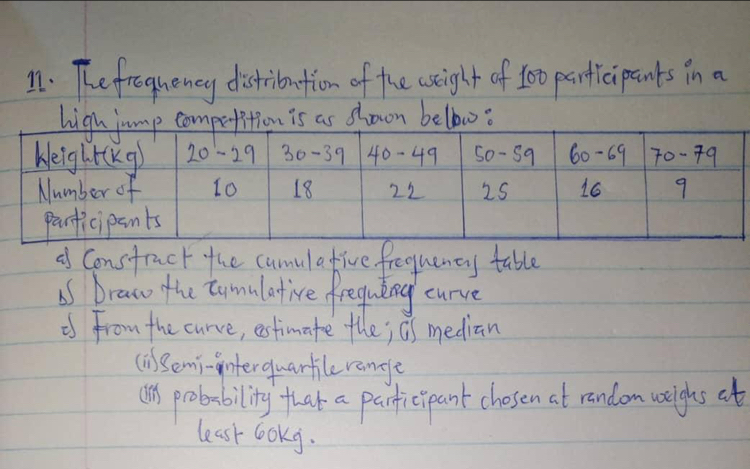 11. The frequency distribution of the weight of 100 participants in a
high jump competition is as shown below:
Weight(Kg) 20-29 30-39 40-49 50-59 60-69 70-79
Number of 10 18 22 25 16 9
participants
a) Construct the cumulative frequency table
b) Draw the cumulative frequency curve
c) From the curve, estimate the; (i) median
(ii) Semi-interquartile range
(iii) probability that a participant chosen at random weighs at
least 60kg.